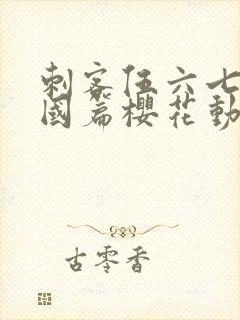 刺客伍六七
國篇櫻花動
古零香